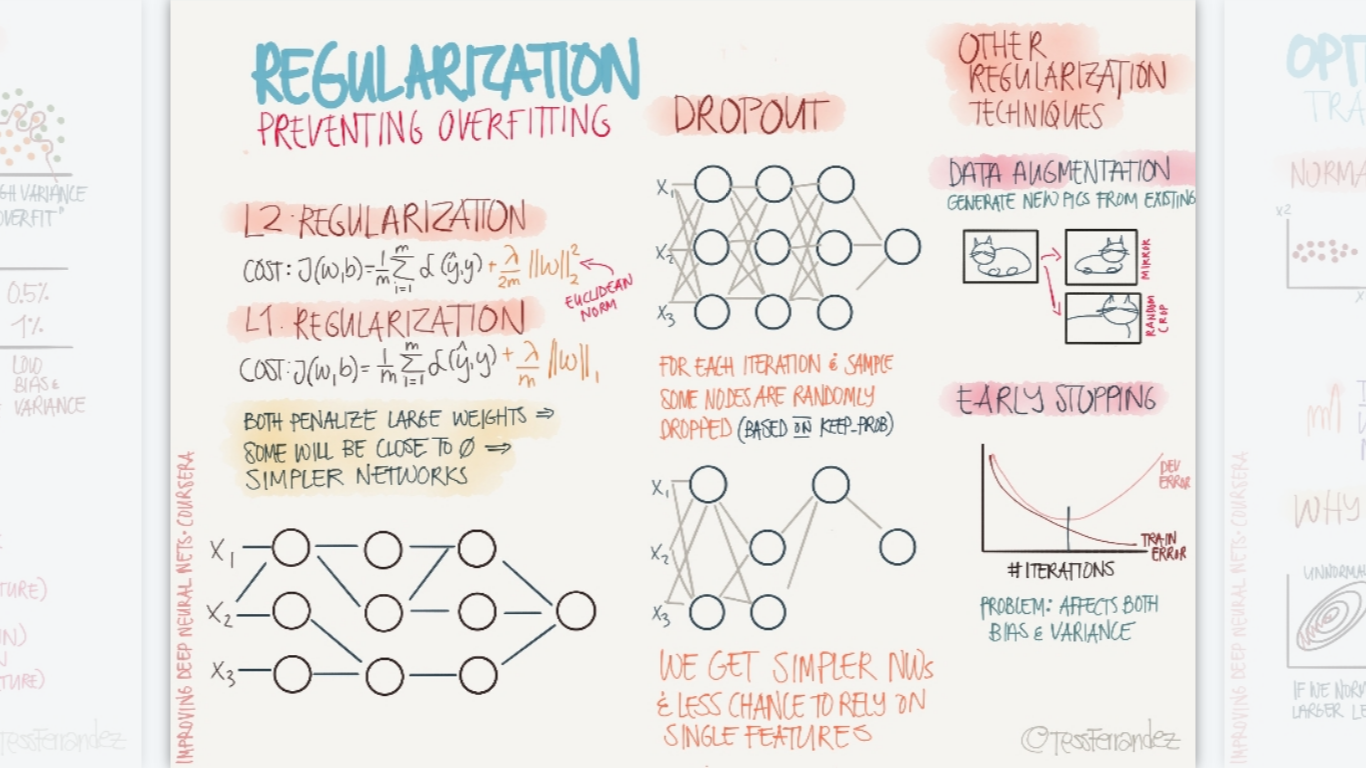 REGULARIZATION
PREVENTING OVERFITTING
L2. REGULARIZATION
COST: J(w,b)=1/m Σ_{i=1}^{m} L(ŷ,y) + λ/2m ||w||₂²
EUCLIDEAN
NORM
L1. REGULARIZATION
COST: J(w,b)= 1/m Σ_{i=1}^{m} L(ŷ,y) + λ/m ||w||₁
BOTH PENALIZE LARGE WEIGHTS ⇒
SOME WILL BE CLOSE TO Ø ⇒
SIMPLER NETWORKS
X1
X2
X3
IMPROVING DEEP NEURAL NETS· COURSERA
DROPOUT
X1
X2
X3
FOR EACH ITERATION & SAMPLE
SOME NODES ARE RANDOMLY
DROPPED (BASED ON KEEP_PROB)
X1
X2
X3
WE GET SIMPLER NWs
& LESS CHANCE TO RELY ON
SINGLE FEATURES
OTHER
REGULARIZATION
TECHNIQUES
DATA AUGMENTATION
GENERATE NEW PICS FROM EXISTING
MIRROR
RANDOM
CROP
EARLY STOPPING
DEV
ERROR
TRAIN
ERROR
# ITERATIONS
PROBLEM: AFFECTS BOTH
BIAS & VARIANCE
©TessFerrandez
GH VARIANCE
OVERFIT"
0.5%
1%
LOW
BIAS &
VARIANCE
TURE)
TURE)
TessFerrandez
OPT
TRA
NORMA
x2
WHY
UNNORMA
IF WE NORM
LARGER LE
IMPROVING DEEP NEURAL NETS· COURSERA